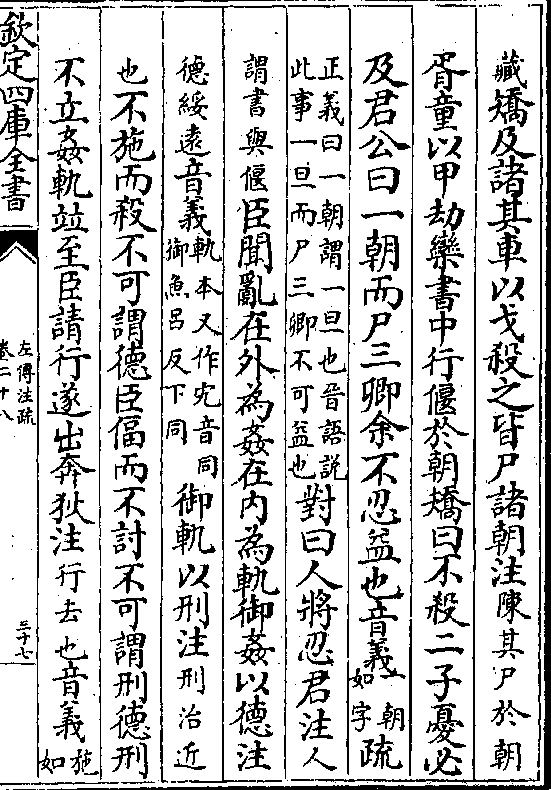 藏矯及諸其車以戈殺之皆尸諸朝注陳其尸於朝
胥童以甲劫欒書中行偃於朝矯曰不殺二子憂必
及君公曰一朝而尸三卿余不忍益也音義一朝如字疏
正義曰一朝謂一旦也晉語説此事一旦而尸三卿不可益也對曰人將忍君注人
謂書與偃臣聞亂在外為姦在内為軌御姦以德注
德綏遠音義軌本又作宄音同御魚呂反下同御軌以刑注刑治近
也不施而殺不可謂德臣偪而不討不可謂刑德刑
不立姦軌竝至臣請行遂出奔狄注行去也音義施如
欽定四庫全書
左傳注疏
卷二十八
三十七